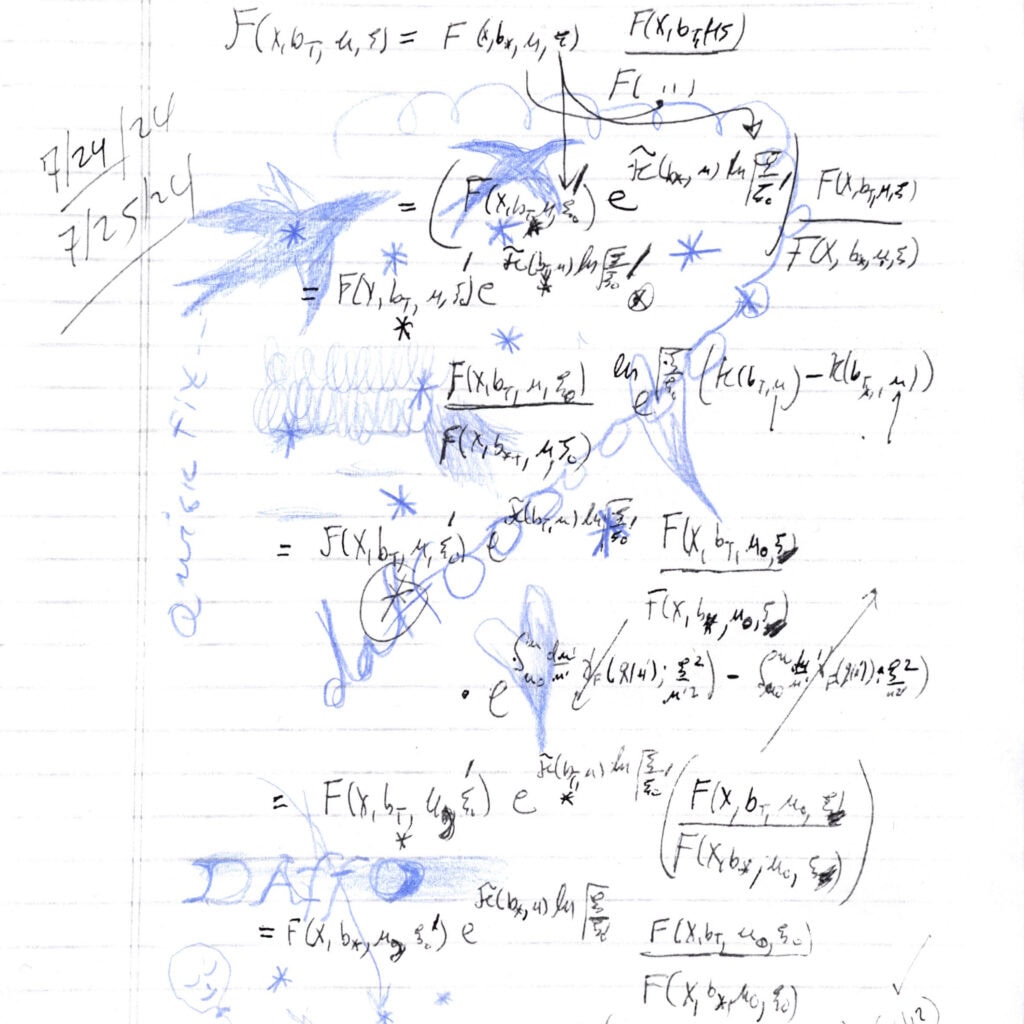 F(x, b_T, μ, ξ) = F(x, b_*, μ, ξ) F(x, b_T, μ, ξ)
F(...)
7/24/24
= ( F(x, b_T*, μ, ξ_0') e^{K̃(b_*, μ) ln √(ξ/ξ_0')} ) F(x, b_T, μ, ξ) / F(x, b_*, μ, ξ)
7/25/24
= F(x, b_T*, μ, ξ_0') e^{K̃(b_T*, μ) ln √(ξ/ξ_0')}
F(x, b_T, μ, ξ_0) / F(x, b_*T, μ, ξ_0) e^{ln √(ξ/ξ_0) (K̃(b_T, μ) - K̃(b_T*, μ))}
Quick Fix--
= F(x, b_T*, μ, ξ_0') e^{K̃(b_T, μ) ln √(ξ/ξ_0')} F(x, b_T, μ_0, ξ) / F(x, b_*, μ_0, ξ)
daf
· e^{∫_{μ_0}^{μ} dμ'/μ' γ_F(g(μ'); ξ/μ'^2) - ∫_{μ_0}^{μ} dμ'/μ' γ_F(g(μ'); ξ/μ'^2)}
= F(x, b_T*, μ, ξ_0') e^{K̃(b_T*, μ) ln √(ξ/ξ_0')} ( F(x, b_T, μ_0, ξ) / F(x, b_*, μ_0, ξ) )
DAffO
= F(x, b_*, μ, ξ_0') e^{K̃(b_*, μ) ln √(ξ/ξ_0')} F(x, b_T, μ_0, ξ_0) / F(x, b_*, μ_0, ξ_0)